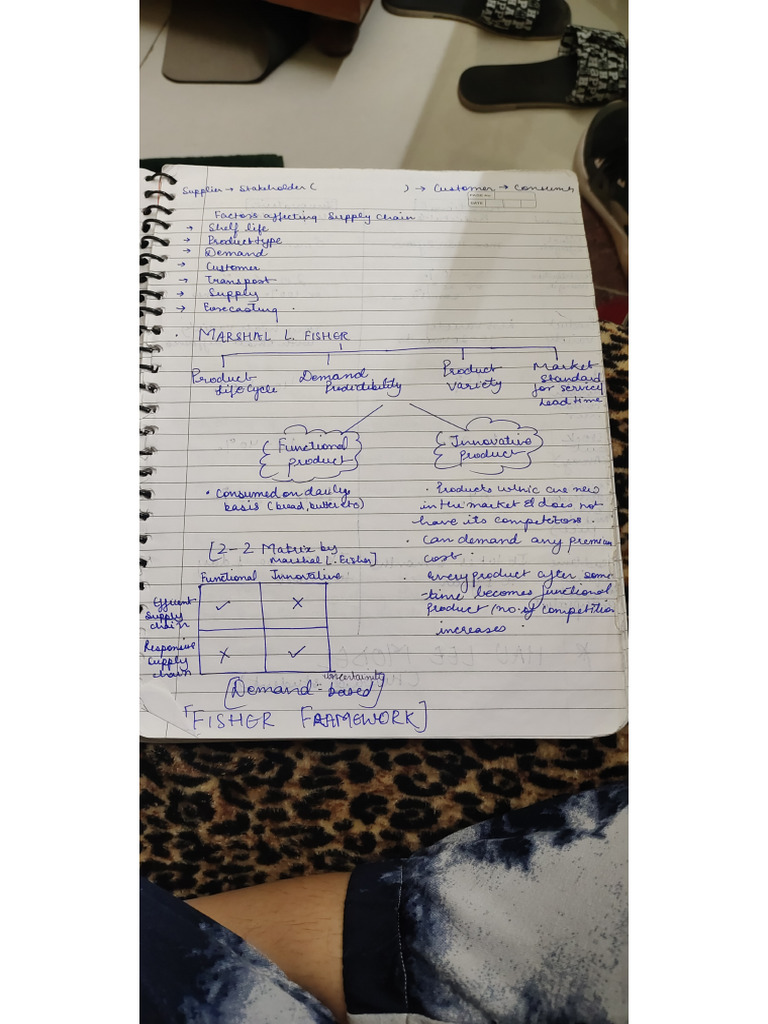 Supplier → Stakeholder ( ) → Customer → Consumer
DATE
Factors affecting Supply Chain
→ Shelf life
→ Product type
→ Demand
→ Customer
→ Transport
→ Supply
→ Forecasting.
• MARSHAL L. FISHER
Product Life Cycle
Demand Predictibility
Product Variety
Market Standard for service Lead time
Functional product
• Consumed on daily basis (bread, butter etc)
Innovative Product
• Products which are new
in the market & does not
have its competitors.
• Can demand any premium
cost.
• every product after some
-time becomes functional
product / no. of competition
increases.
[2-2 Matrix by
Marshal L. Fisher]
Functional Innovative
Efficient supply chain ✓ ✗
Responsive supply chain ✗ ✓
uncertainity
[Demand - based]
[FISHER FRAMEWORK]